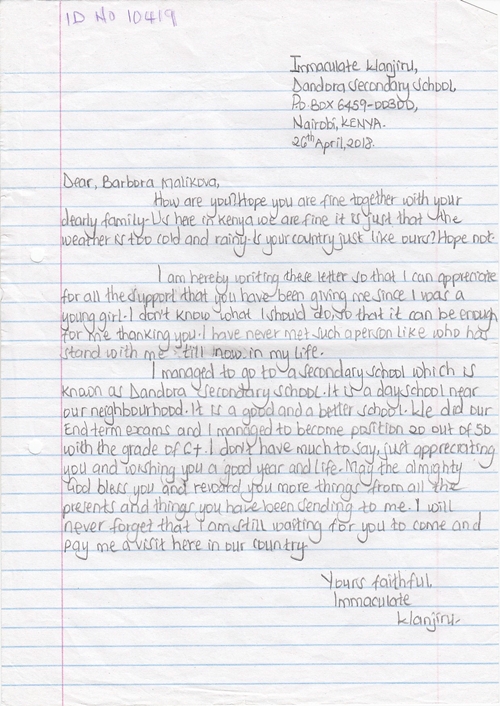 ID No 10419
Immaculate Wanjiru,
Dandora Secondary School,
P.O BOX 6459-00300,
Nairobi, KENYA.
26th April, 2018.
Dear, Barbora Malikova,
How are you? Hope you are fine together with your
dearly family. Us here in Kenya we are fine it is just that the
weather is too cold and rainy. Is your country just like ours? Hope not.
I am hereby writing these letter so that I can appreciate
for all the support that you have been giving me since I was a
young girl. I don't know what I should do, so that it can be enough
for me thanking you. I have never met such a person like who has
stand with me till now in my life.
I managed to go to a secondary school which is
known as Dandora secondary school. It is a day school near
our neighbourhood. It is a good and a better school. We did our
End term exams and I managed to become position 20 out of 50
with the grade of C+. I don't have much to say, just appreciating
you and wishing you a good year and life. May the almighty
God bless you and reward you more things from all the
presents and things you have been sending to me. I will
never forget that I am still waiting for you to come and
pay me a visit here in our country.
Yours faithful.
Immaculate
Wanjiru.